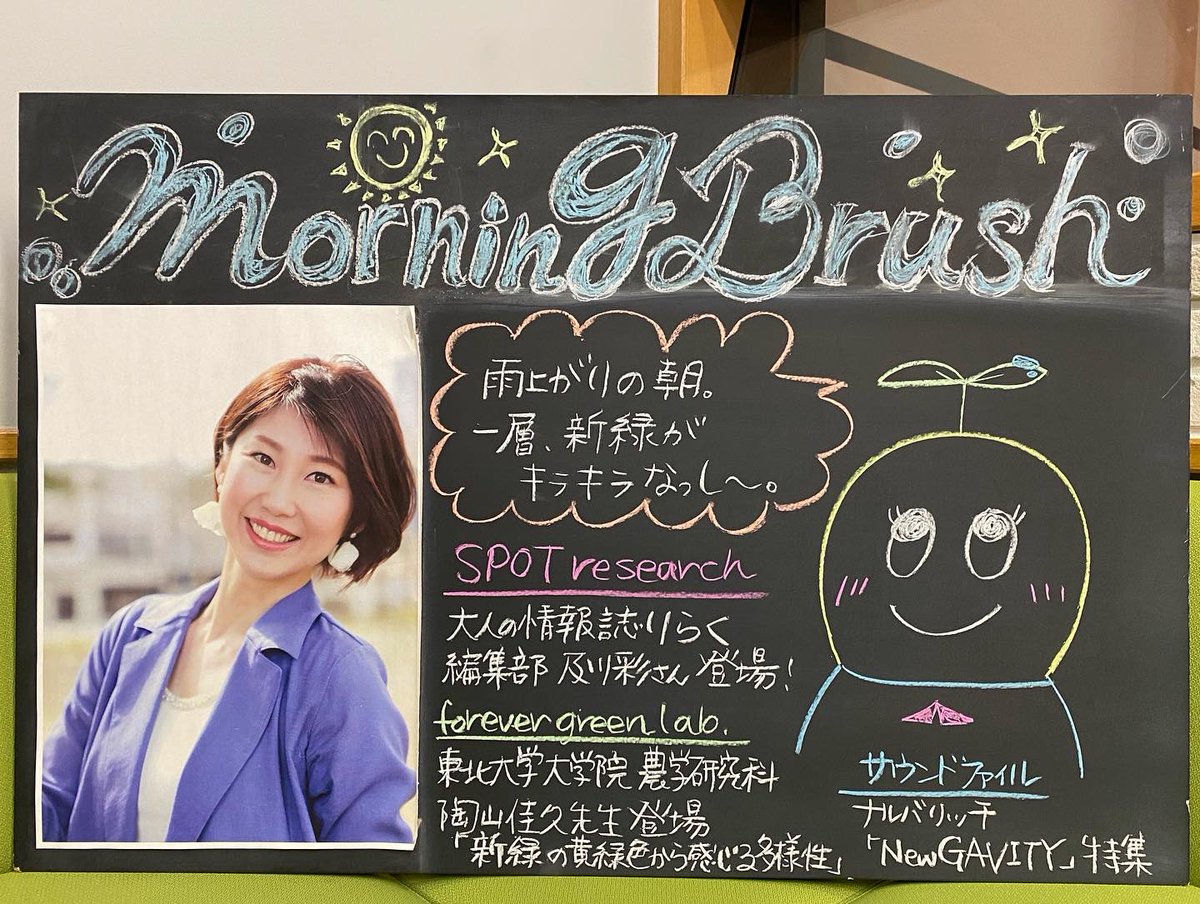 Morning Brush
雨上がりの朝。
一層、新緑が
キラキラなっし〜。
SPOT research
大人の情報誌りらく
編集部 及川彩さん 登場!
forever green lab.
東北大学大学院 農学研究科
陶山佳久先生登場
「新緑の黄緑色から感じる多様性」
サウンドファイル
ナルバリッチ
「New GAVITY」特集